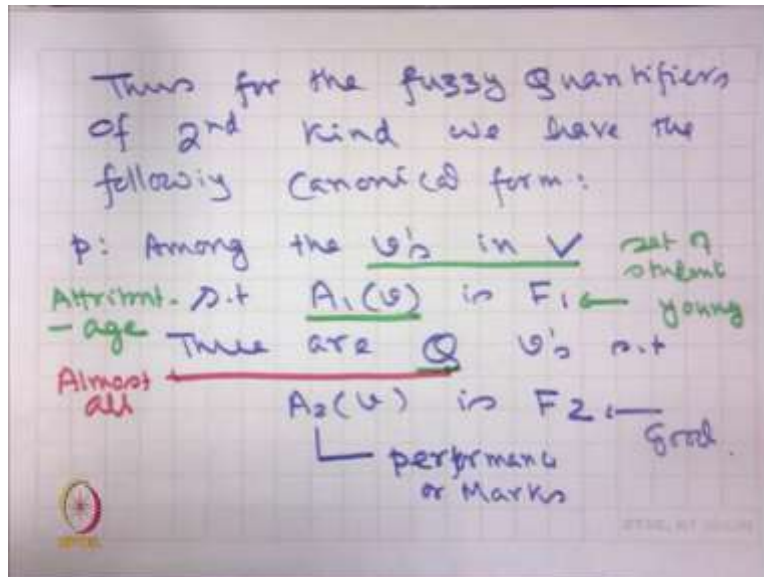 Thus for the fuzzy Quantifiers
Of 2nd kind we have the
followiy Canonical form:
p: Among the v's in V set of
student
Attribut. s.t A1(v) is F1 ← young
- age
There are Q v's s.t
Almost
all
A2(v) is F2 ← Good.
performanc
or Marks